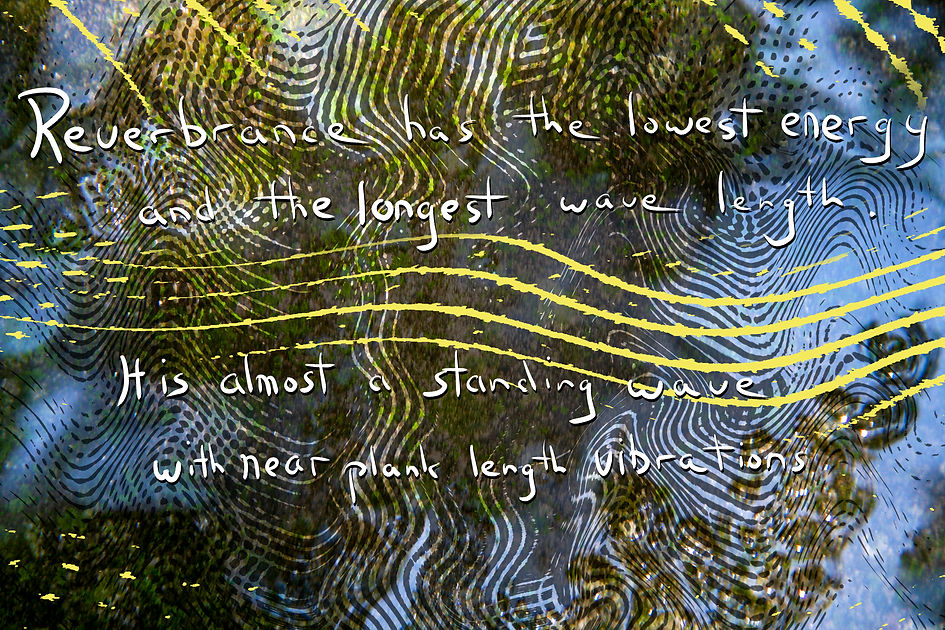 Reverbrance has the lowest energy
and the longest wave length.
It is almost a standing wave
with near plank length vibrations